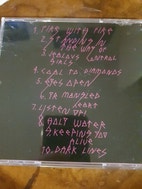 1. FIRE WITH FIRE
2. STANDING IN
THE WAY OF
3. JEALOUS CONTROL
GIRLS
4. COAL TO DIAMONDS
5. EYES OPEN
6. YR MANGLED
HEART
7. LISTEN UP!
8. HOLY WATER
9. KEEPING YOU
ALIVE
10. DARK LINES